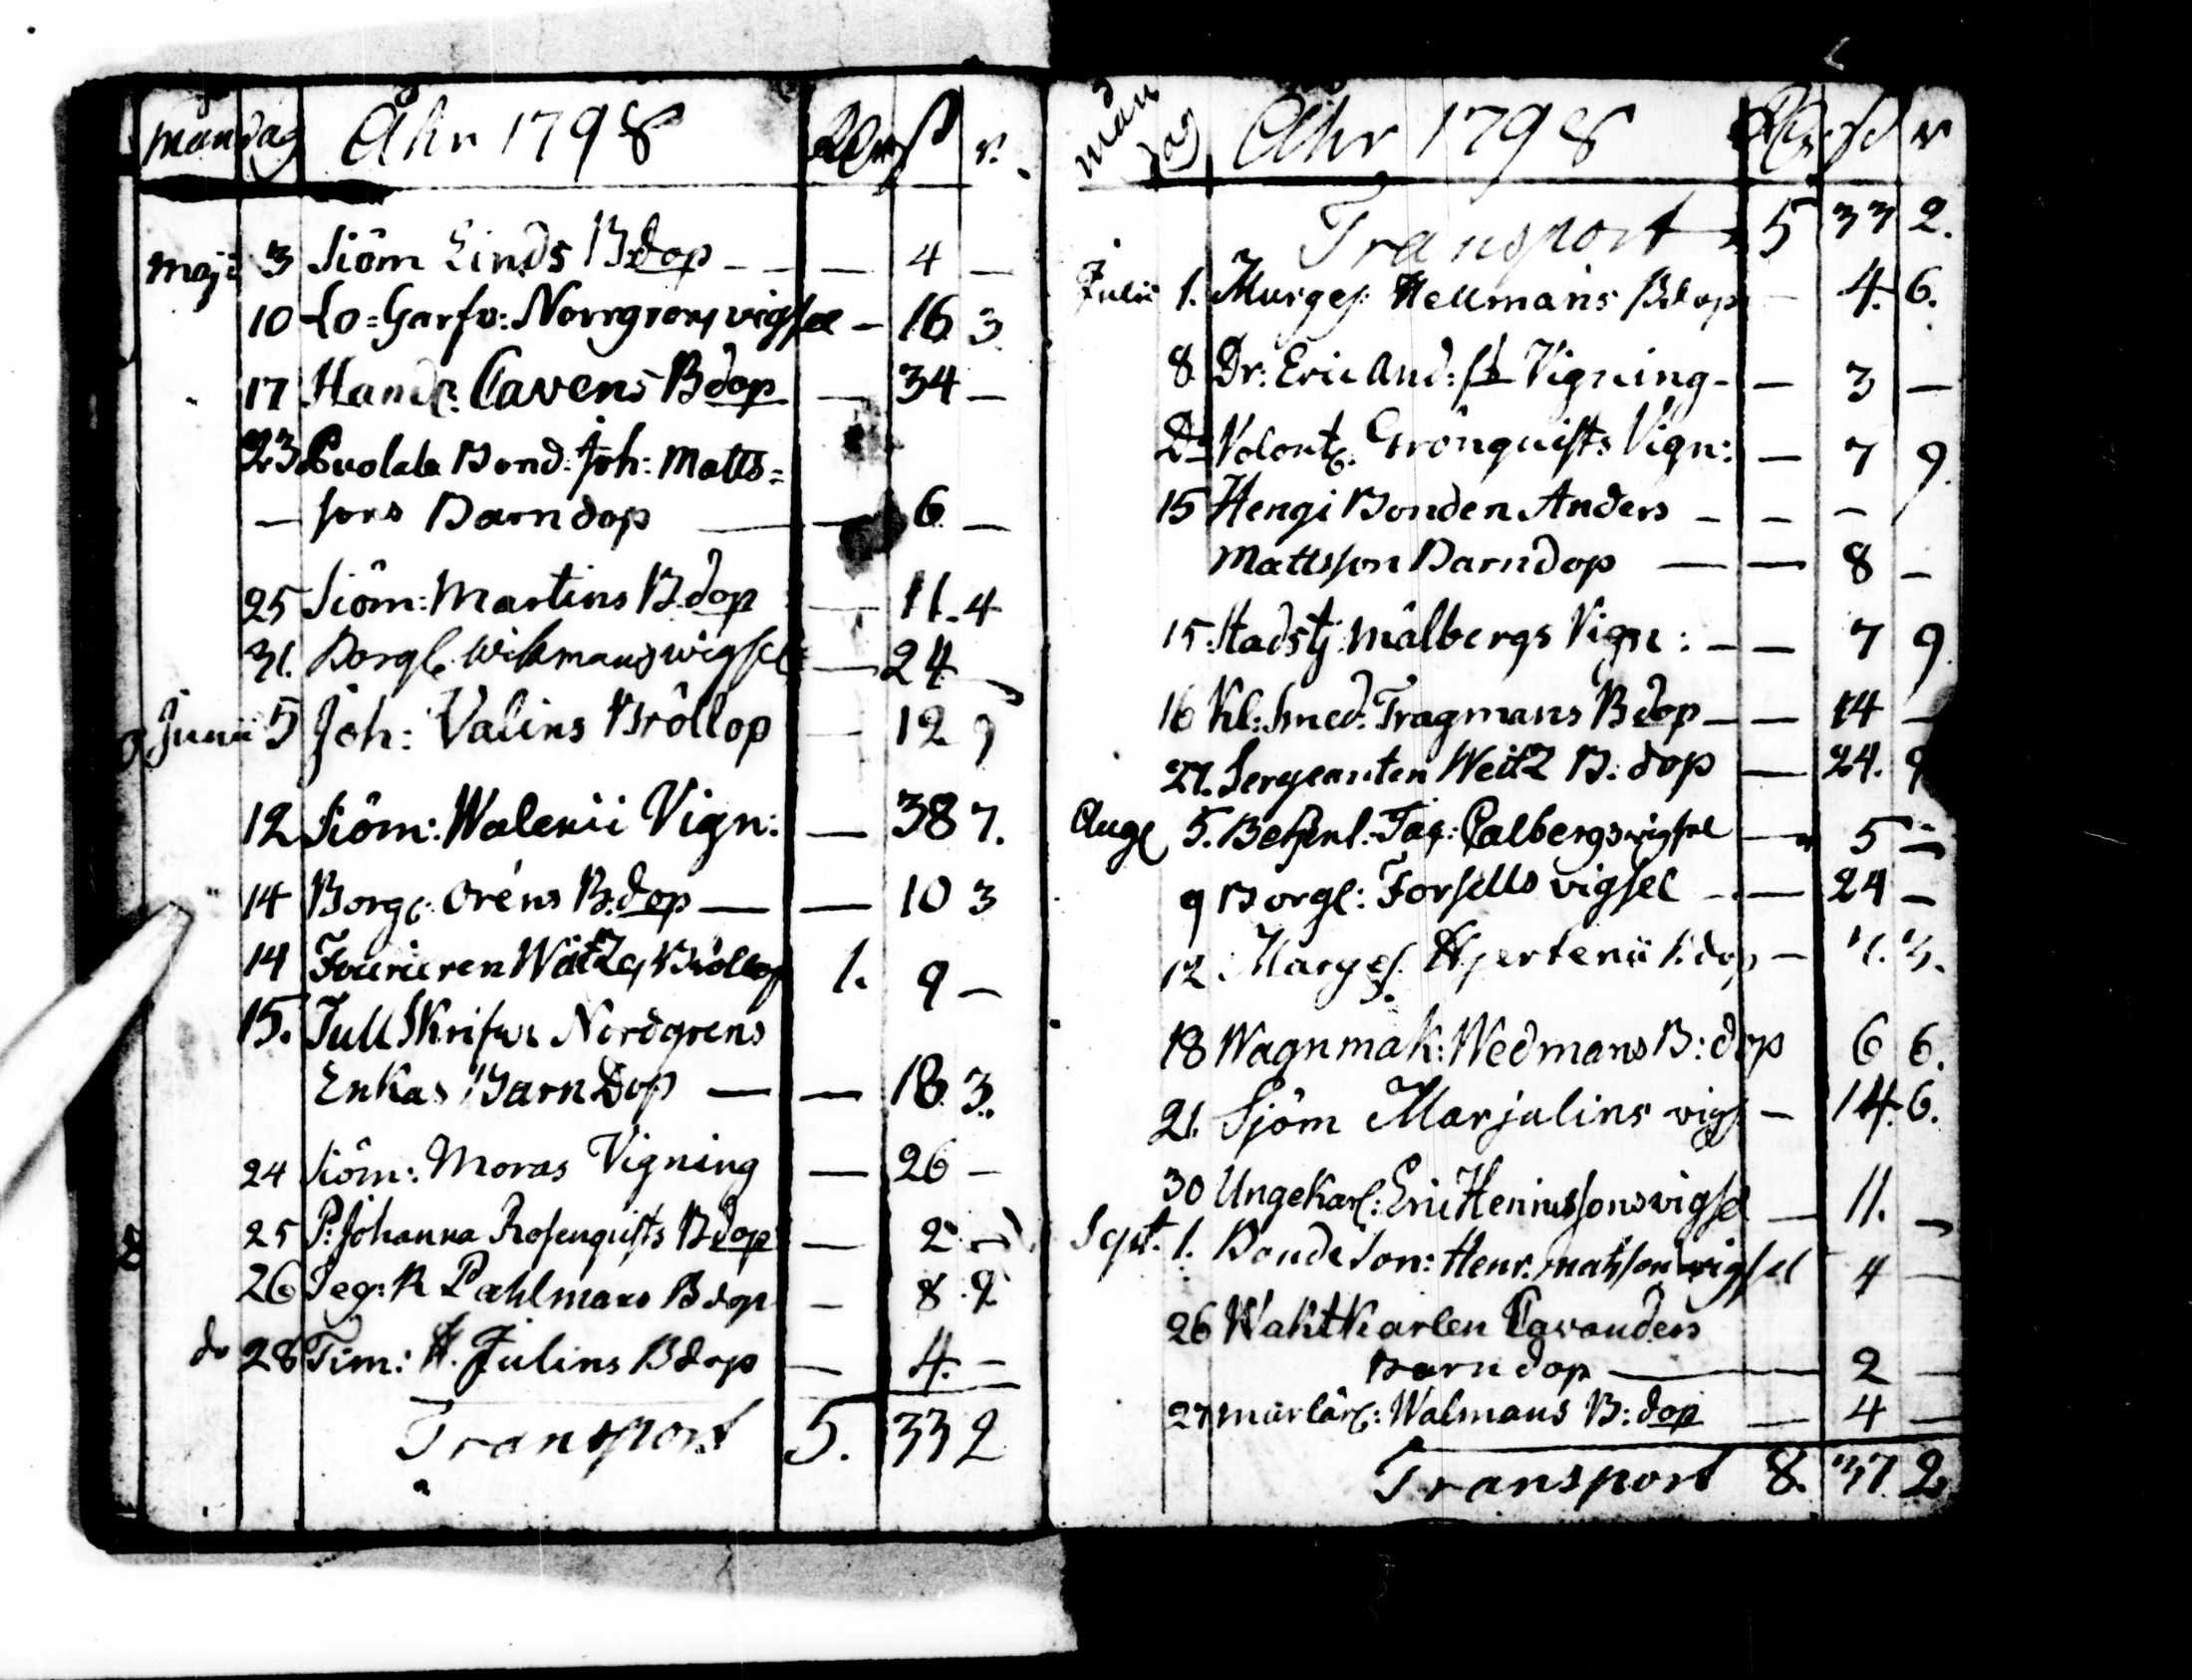 månadag Åhr 1798 RDr ß r.
Maji 3 Siöm Linds Bdop - - — 4 —
10 Lo=Garfv: Norrgrens vigsel - 16 3
17 Handl: Cavens Bdop — 34 —
23 Puolala Bond: Joh: Matts=
— sons Barndop — — 6 —
25 Siöm: Martins Bdop — 11. 4
31. Borgl. Wikmans wigsel — 24 —
Junii 5 Joh: Valins Bröllop — 12 9
12 Siöm: Walenii Vign: — 38 7.
14 Borgl: Oréns B:dop — — 10 3
14 Fourieren Wäitzes Bröllop 1. 9 —
15. Tull Skrifvar Nordgrens
Enkas Barn Dop — — 18. 3.
24 Siöm: Moras Vigning — 26 —
25 P: Johanna Rosenquists Bdop — 2 —
26 Teg: R Pahlmans Bdop — 8. 9.
do 28 Tim: H. Julins Bdop — 4. —
Transport 5. 33 2
månadag Åhr 1798 RDr ß r
Transport 5 33 2.
Julii 1. Murges: Hellmans Bdop — 4. 6.
8 Dr: Eric And: Vigning - — 3 —
Do Volont: Grönquists Vign: — 7 9.
15 Hengi Bonden Anders - - -
Mattsson Barndop — — 8 —
15. Stadstj Målbergs Vign: - — 7 9.
16 Kl: Smed: Tragmans Bdop - — 14 —
27. Sergeanten Weitz B: dop — 24. 9
Aug 5. Calbergs vigsel — 5 —
9 Borgl: Forsells vigsel - — 24 —
12 Marges. Hjertenii B:dop - 4. 3.
18 Wagnmak: Wedmans B: dop 6 6.
21. Sjöm Marjulins vigs — 14. 6.
30 Ungekarl: Eric Henricssons vigsel — 11. —
Sept. 1. Bonde Son: Henr: Matsons wigsel 4 —
26 Waktkarlen Cavanders
Barndop — 2 —
27 Murlärl: Walmans B: dop — 4 —
Transport 8. 37. 2